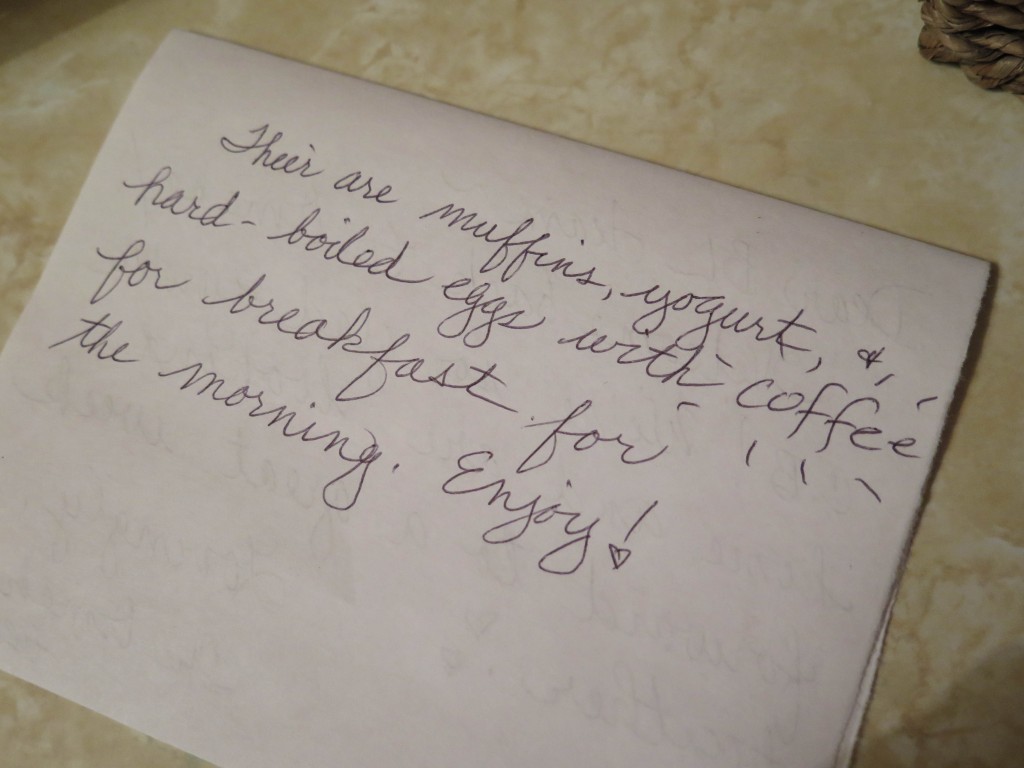 Their are muffins, yogurt, &
hard-boiled eggs with coffee
for breakfast for
the morning. Enjoy!